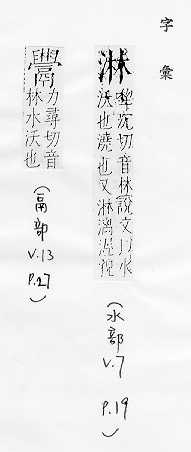 字彙
淋
犂沉切音林說文以水
沃也澆也又淋漓
(水部 V.7 P.19)
力尋切音
林水沃也
(鬲部 V.13 P.27)